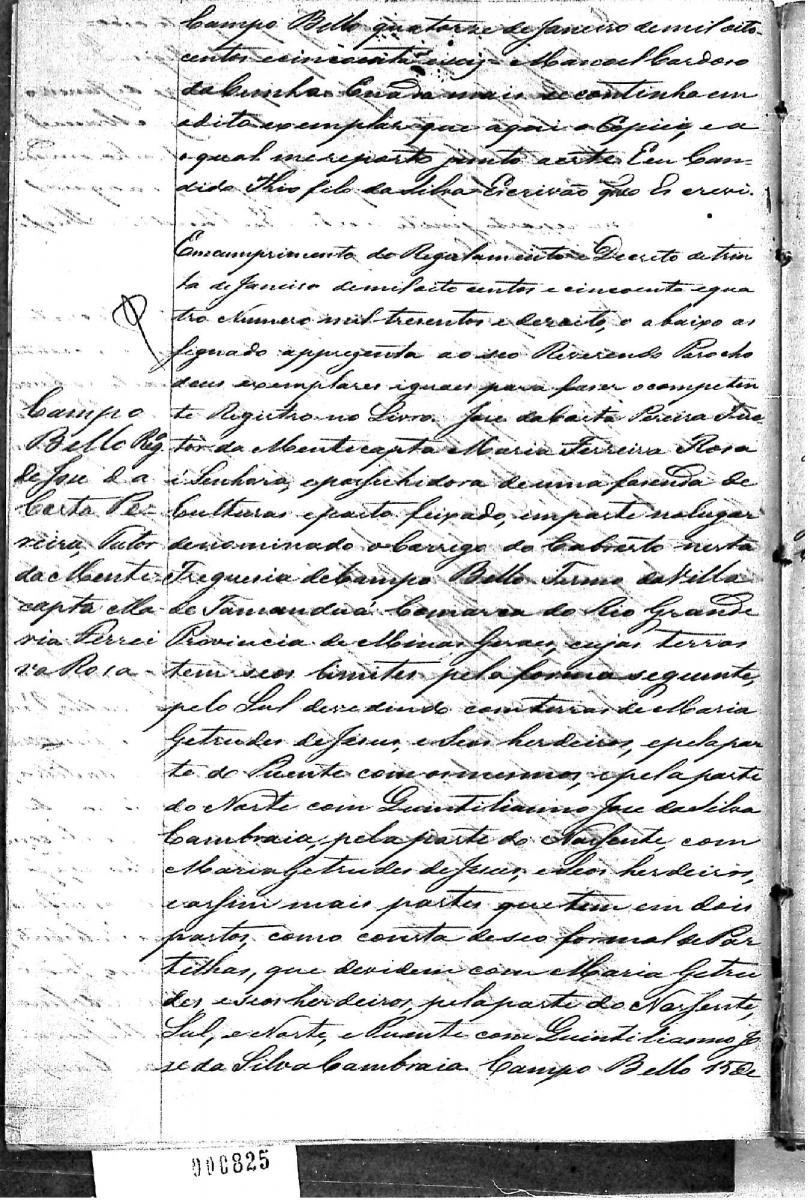 Campo Bello quatorze de Janeiro de mil oito
centos e cincoenta e seis = Manoel Cardoso
da Cunha. E nada mais se continha em
o dito exemplar que aqui o Copiei, e a
o qual me reporto junto a este. E eu Can-
dido Thiofilo da Silva Escrivão que Escrevi.
Em cumprimento do Regulamento e Decreto de trin
ta de Janeiro de mil oito centos e cincoenta e qua
tro Numero mil tresentos e dezoito, o abaixo as
signado appresenta ao seo Reverendo Parocho
dous exemplares iguaes para faser o competen
te Registro no Livro. Jose da Costa Pereira Tuc
tor da Mentecapta Maria Ferreira Rosa
é Senhora, e possuhidora de uma fasenda de
Culturas e pasto feixado, em parte no lugar
denominado o Corrigo do Cabrito nesta
Freguesia de Campo Bello Termo da Villa
de Tamanduá Comarca do Rio Grande
Provincia de Minas Geraes, cujas terras
tem seos limites pela forma seguinte,
pelo Sul devedindo com terras de Maria
Getrudes de Jesus, e Seus herdeiros, e pela par
te do Puente com os mesmos, e pela parte
do Norte com Quintilianno Jose da Silva
Cambraia, pela parte do Nassente, com
Maria Getrudes de Jesus, e seos herdeiros,
e assim mais partes que tem em dois
pastos, como consta de seo formal de Par
tilhas, que devidem com Maria Getru
des e seos herdeiros, pela parte do Nassente,
Sul, e Norte, e Puente com Quintilianno Jo
se da Silva Cambraia. Campo Bello 15 de
Campo
Bello Rgº
de Jose da
Costa Pe-
reira Tutor
da Mente
capta Ma
ria Ferrei
ra Rosa -
000825